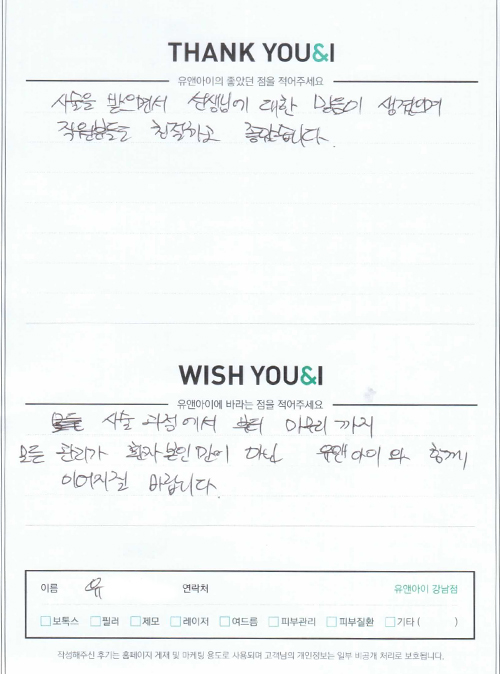 THANK YOU&I
유앤아이의 좋았던 점을 적어주세요
시술을 받으면서 선생님에 대한 믿음이 생겼으며
직원분들도 친절하고 좋았습니다.
WISH YOU&I
유앤아이에 바라는 점을 적어주세요
시술 과정에서 부터 마무리 까지
모든 관리가 환자 본인만이 아닌 유앤아이와 함께
이어지길 바랍니다.
이름 유 연락처 유앤아이 강남점
보톡스 필러 제모 레이저 여드름 피부관리 피부질환 기타 ( )
작성해주신 후기는 홈페이지 게재 및 마케팅 용도로 사용되며 고객님의 개인정보는 일부 비공개 처리로 보호됩니다.